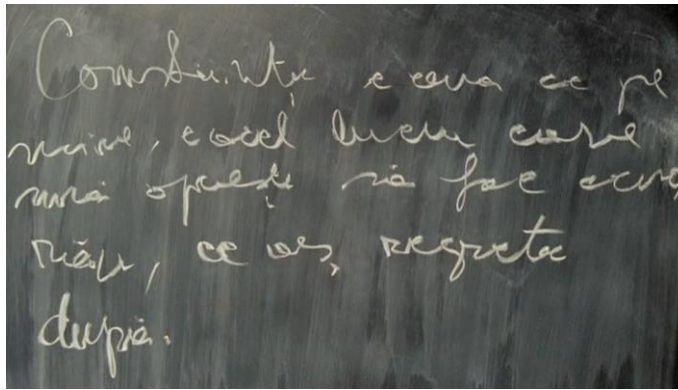 Conștiința e ceva ce pe
mine, e acel lucru care
mă oprește să fac ceva
rău, ce aș regreta
după.